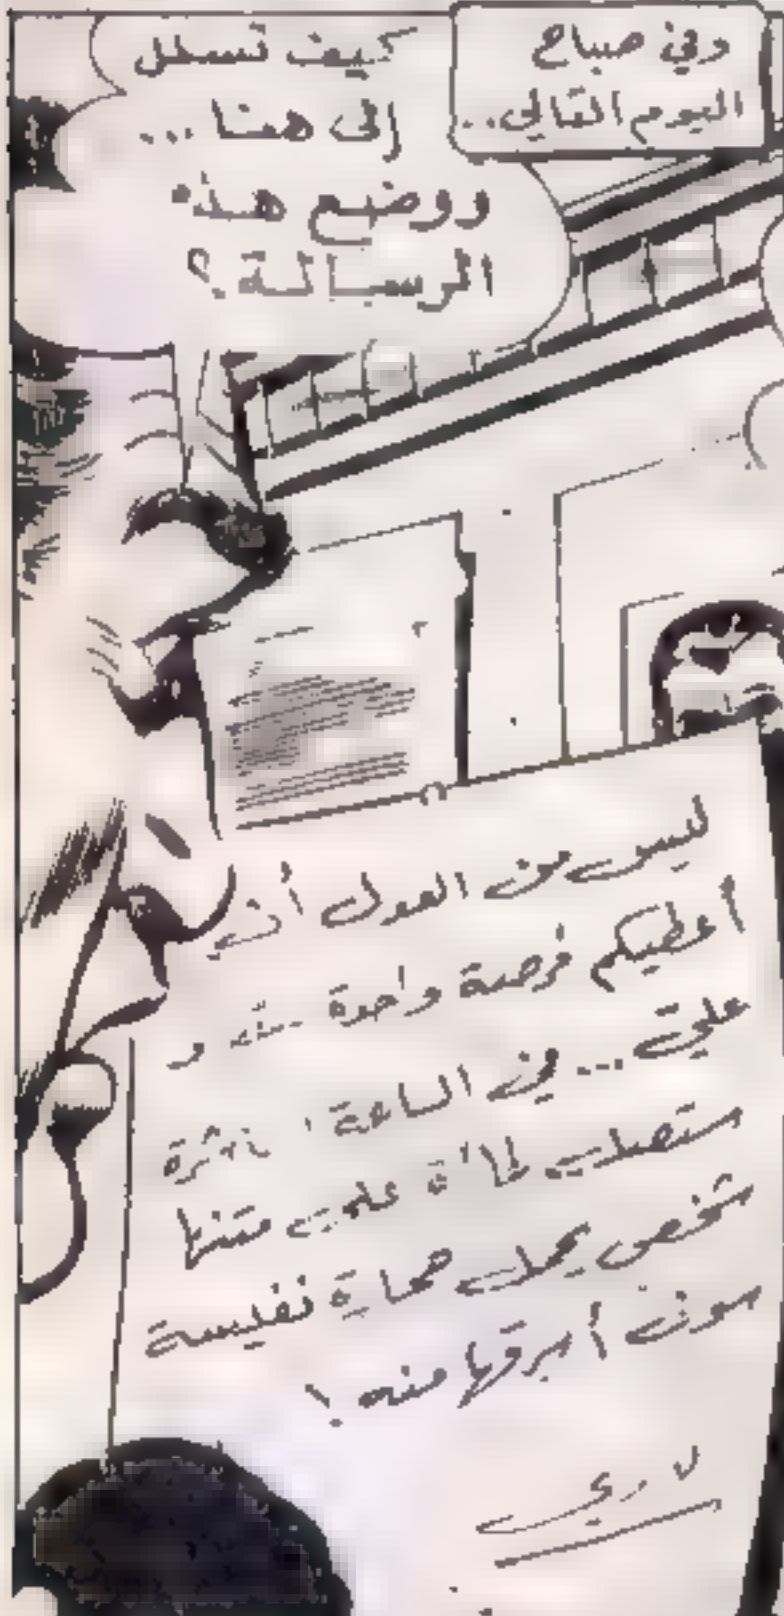 وفي صباح
اليوم التالي..
كيف تسلل
إلى هنا ...
ووضع هذه
الرسالة؟
ليس من العدل أن
أعطيكم فرصة واحدة و
علي... في الساعة
ستصل على متنها
شخص يحمل نفيسة
سوف أسرقها منه!
لاري